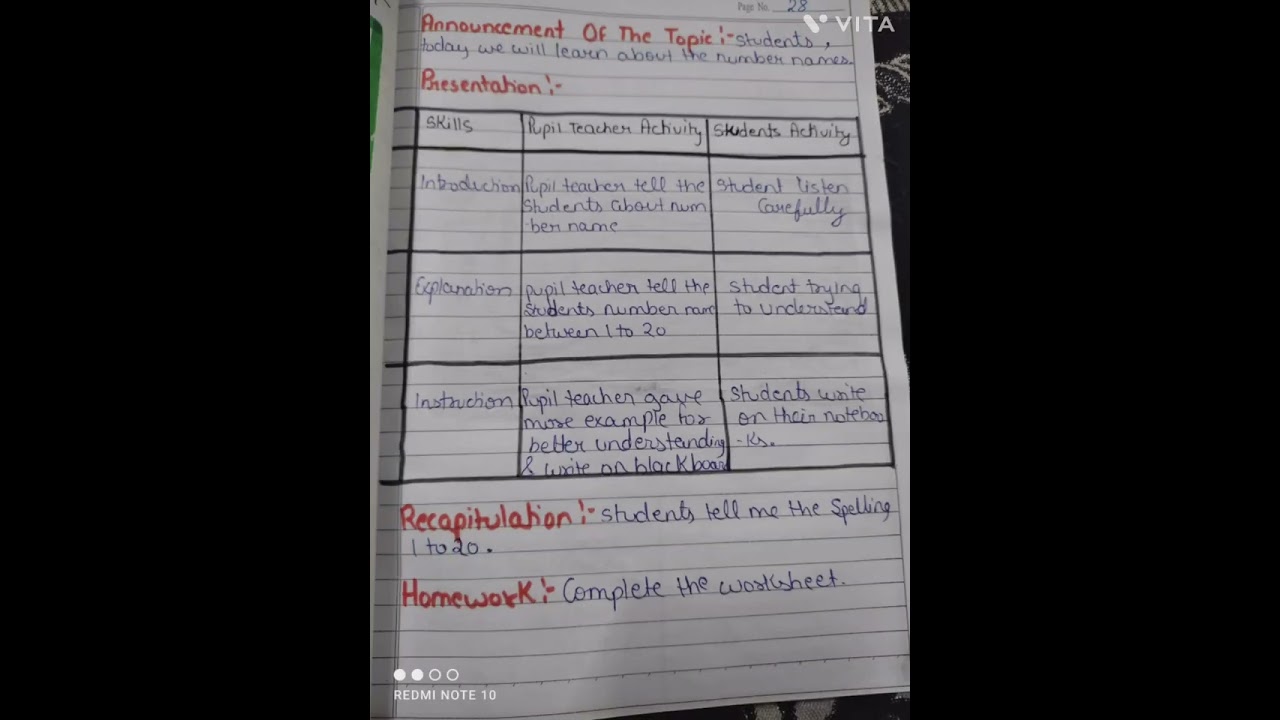 Page No. 28
VITA
Announcement Of The Topic :- Students,
today we will learn about the number names.
Presentation :-
Skills
Pupil Teacher Activity
Students Activity
Introduction
Pupil teacher tell the
Students about num
-ber name
Student listen
Carefully
Explanation
pupil teacher tell the
Students number name
between 1 to 20
Student trying
to understand
Instruction
Pupil teacher gave
more example for
better understanding
& write on blackboard
Students write
on their noteboo
-ks.
Recapitulation :- Students tell me the Spelling
1 to 20.
Homework :- Complete the worksheet.
REDMI NOTE 10